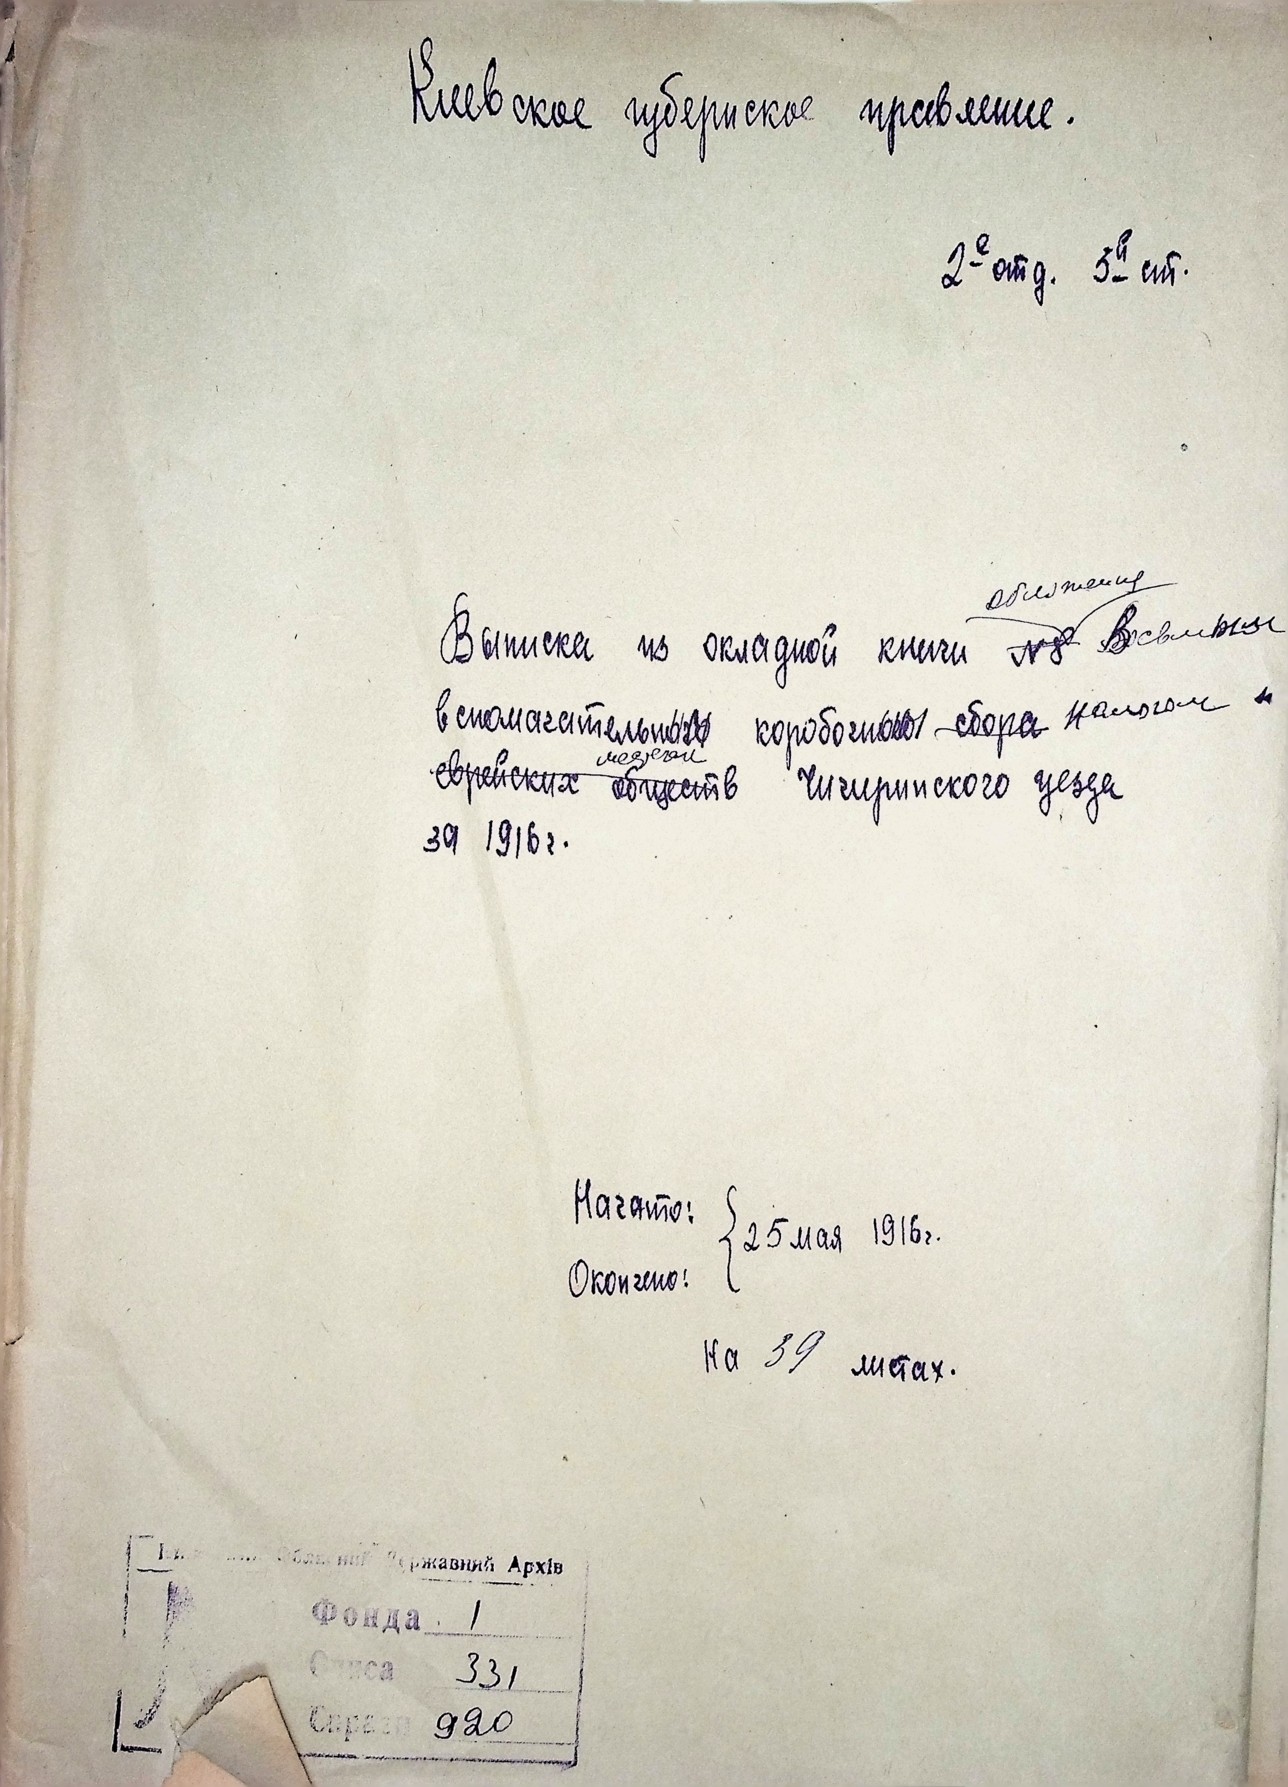 Киевское губернское правление.
2-е отд. 3-й ст.
обложения
Выписка из окладной книги №8
вспомагательный коробочный сбора налогом и
еврейских обществ Чигиринского уезда
за 1916г.
Начато:
25 мая 1916г.
Окончено:
На 39 листах.
Державний Архів
Фонда 1
Описа 331
Справа 920